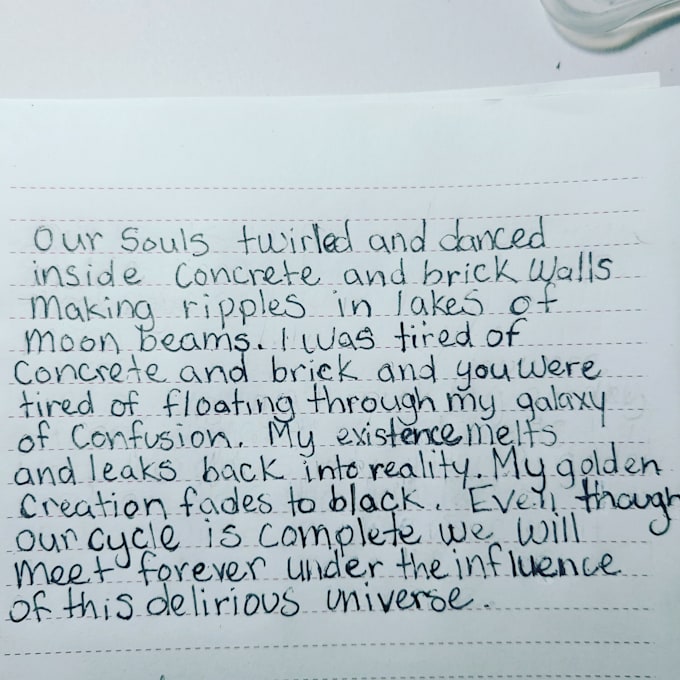 Our Souls twirled and danced
inside Concrete and brick Walls
Making ripples in lakes of
moon beams. I was tired of
Concrete and brick and you were
tired of floating through my galaxy
of Confusion. My existence melts
and leaks back into reality. My golden
Creation fades to black. Even though
our cycle is complete we will
meet forever under the influence
of this delirious universe.